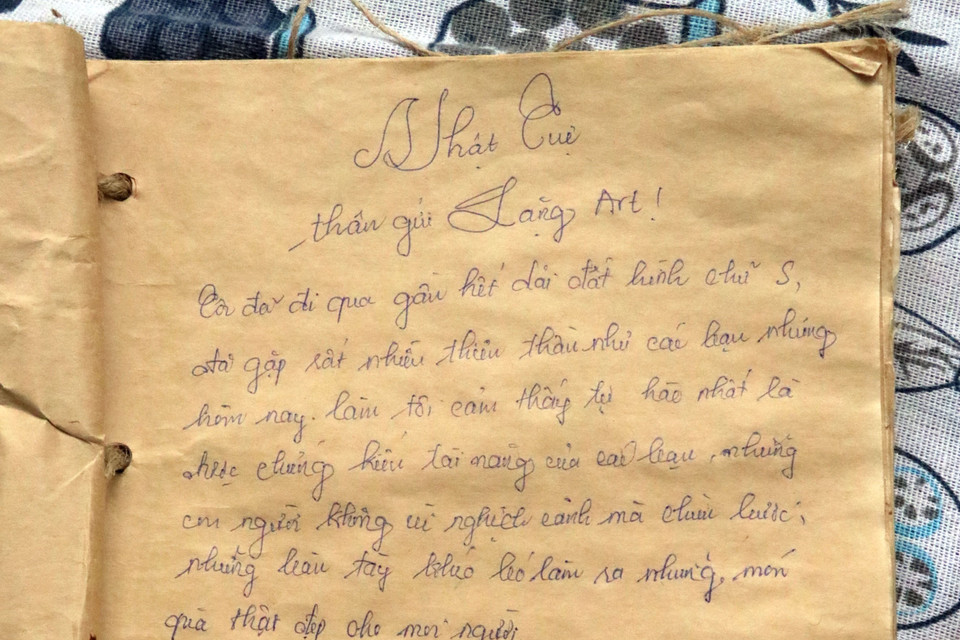 Nhật Cuộ
thân gửi Lặng Art!
Cô đã đi qua gần hết dải đất hình chữ S,
đã gặp rất nhiều thiên thần như các bạn nhưng
hôm nay. làm tôi cảm thấy tự hào nhất là
được chứng kiến tài năng của các bạn, những
con người không vì nghịch cảnh mà chùn bước,
những bàn tay khéo léo làm ra những, món
quà thật đẹp cho mọi người